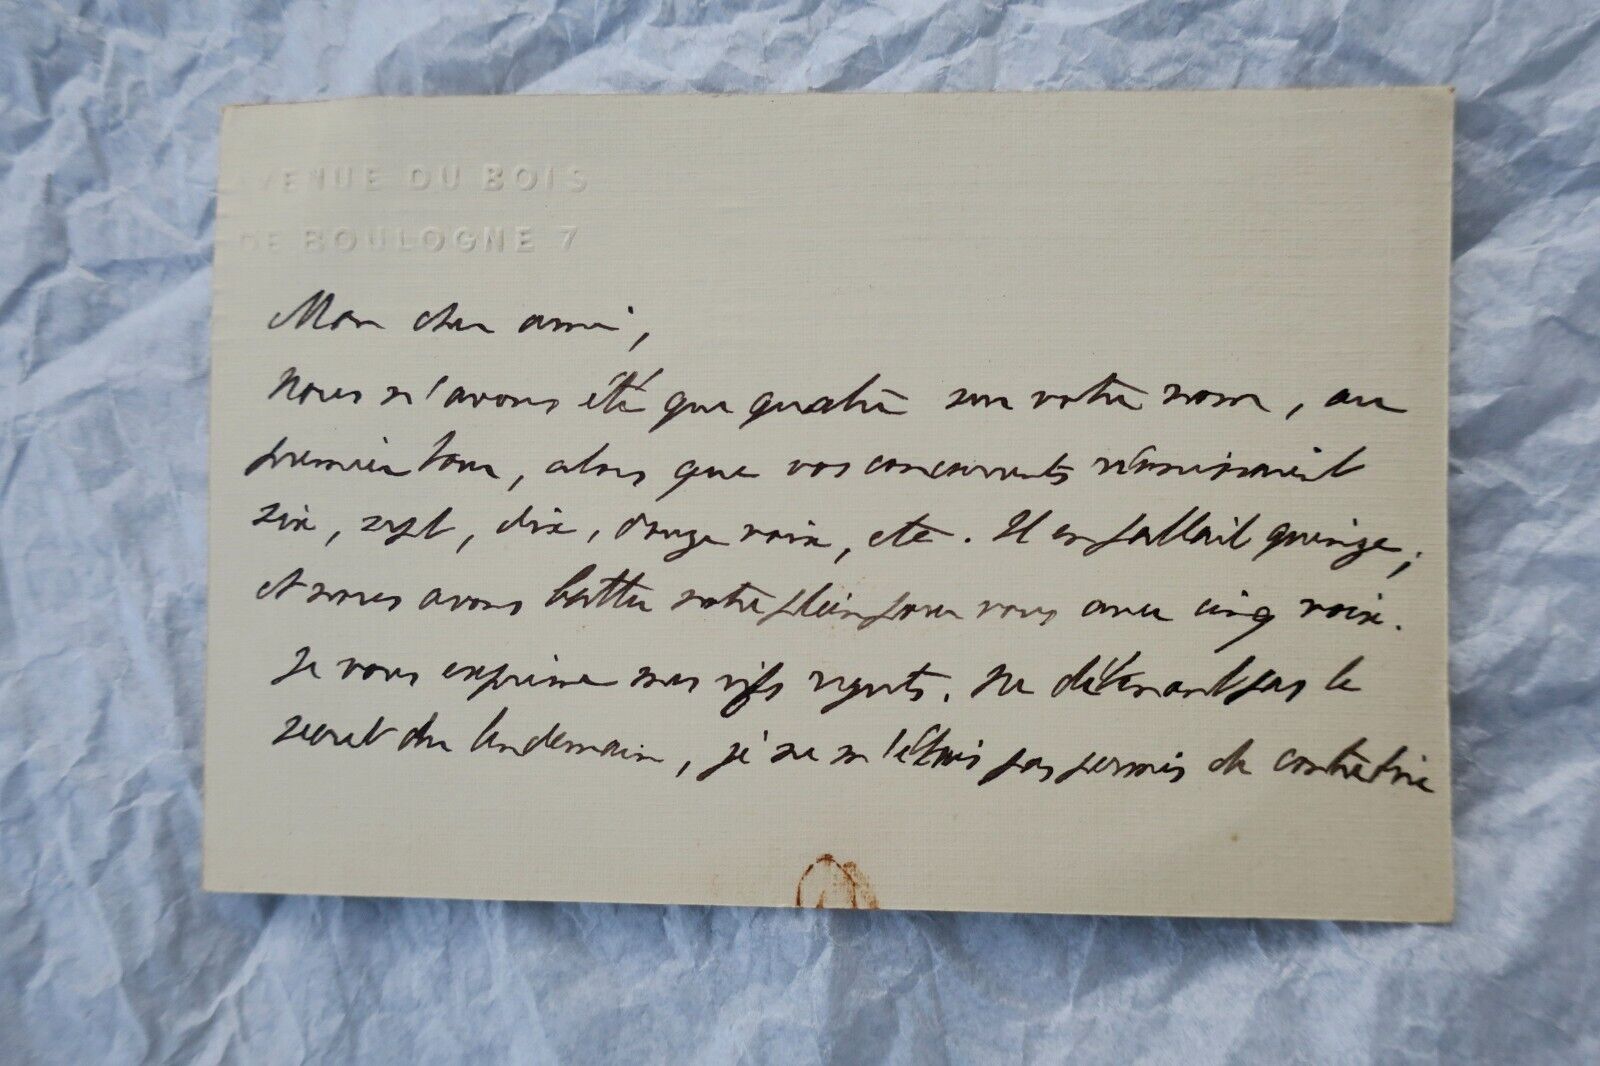 VENUE DU BOIS
DE BOULOGNE 7
Mon cher ami,
Nous n'avons été que quatre sur votre nom, au
premier tour, alors que vos concurrents réunissaient
six, sept, dix, douze voix, etc. Il en fallait quinze;
et nous avons battu notre plein pour vous avec cinq voix.
Je vous exprime mes vifs regrets. Ne détenant pas le
secret du lendemain, je ne m'étais pas permis de contredire